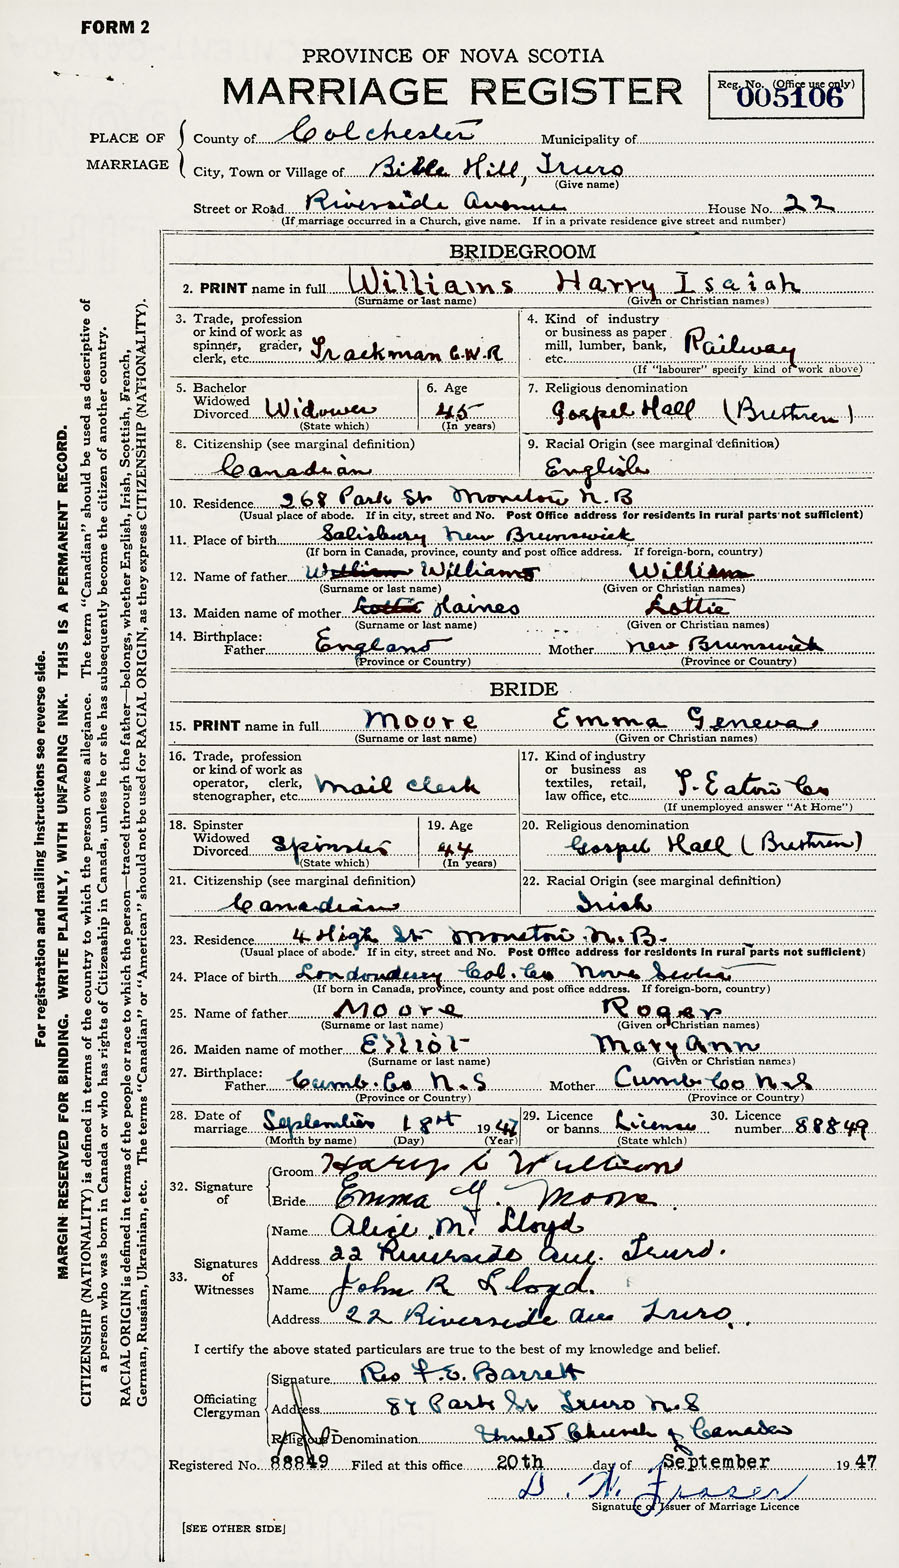 FORM 2
PROVINCE OF NOVA SCOTIA
MARRIAGE REGISTER
Reg. No. (Office use only)
005106
PLACE OF MARRIAGE
County of Colchester Municipality of
City, Town or Village of Bible Hill, Truro
(Give name)
Street or Road Riverside Avenue House No. 22
(If marriage occurred in a Church, give name. If in a private residence give street and number)
BRIDEGROOM
2. PRINT name in full Williams Harry Isaiah
(Surname or last name) (Given or Christian names)
3. Trade, profession or kind of work as spinner, grader, clerk, etc. Trackman C.N.R
4. Kind of industry or business as paper mill, lumber, bank, etc. Railway
(If "labourer" specify kind of work above)
5. Bachelor Widowed Divorced Widower
(State which)
6. Age 45
(In years)
7. Religious denomination Gospel Hall (Brethren)
8. Citizenship (see marginal definition) Canadian
9. Racial Origin (see marginal definition) English
10. Residence 268 Park St Moncton N.B
(Usual place of abode. If in city, street and No. Post Office address for residents in rural parts not sufficient)
11. Place of birth Salisbury New Brunswick
(If born in Canada, province, county and post office address. If foreign-born, country)
12. Name of father William Williams William
(Surname or last name) (Given or Christian names)
13. Maiden name of mother Lottie Haines Lottie
(Surname or last name) (Given or Christian names)
14. Birthplace: Father England Mother New Brunswick
(Province or Country) (Province or Country)
BRIDE
15. PRINT name in full Moore Emma Geneva
(Surname or last name) (Given or Christian names)
16. Trade, profession or kind of work as operator, clerk, stenographer, etc. Mail clerk
17. Kind of industry or business as textiles, retail, law office, etc. T. Eaton Co
(If unemployed answer "At Home")
18. Spinster Widowed Divorced Spinster
(State which)
19. Age 44
(In years)
20. Religious denomination Gospel Hall (Brethren)
21. Citizenship (see marginal definition) Canadian
22. Racial Origin (see marginal definition) Irish
23. Residence 4 High St Moncton N.B.
(Usual place of abode. If in city, street and No. Post Office address for residents in rural parts not sufficient)
24. Place of birth Londonderry Col. Co Nova Scotia
(If born in Canada, province, county and post office address. If foreign-born, country)
25. Name of father Moore Roger
(Surname or last name) (Given or Christian names)
26. Maiden name of mother Elliot Mary Ann
(Surname or last name) (Given or Christian names)
27. Birthplace: Father Cumb. Co N.S Mother Cumb Co N.S
(Province or Country) (Province or Country)
28. Date of marriage September 18th 1947
(Month by name) (Day) (Year)
29. Licence or banns License
(State which)
30. Licence number 88849
32. Signature of
Groom Harry I. Williams
Bride Emma G. Moore
33. Signatures of Witnesses
Name Alice M. Lloyd
Address 22 Riverside Ave. Truro.
Name John R Lloyd.
Address 22 Riverside Ave Truro.
I certify the above stated particulars are true to the best of my knowledge and belief.
Officiating Clergyman
Signature Rev F. E. Barrett
Address 87 Park St Truro N.S
Religious Denomination United Church of Canada
Registered No. 88849 Filed at this office 20th day of September 1947
D. N. Fraser
Signature of Issuer of Marriage Licence
[SEE OTHER SIDE]
For registration and mailing instructions see reverse side.
MARGIN RESERVED FOR BINDING. WRITE PLAINLY, WITH UNFADING INK. THIS IS A PERMANENT RECORD.
CITIZENSHIP (NATIONALITY) is defined in terms of the country to which the person owes allegiance. The term "Canadian" should be used as descriptive of
a person who was born in Canada or who has rights of Citizenship in Canada, unless he or she has subsequently become the citizen of another country.
RACIAL ORIGIN is defined in terms of the people or race to which the person—traced through the father—belongs, whether English, Irish, Scottish, French,
German, Russian, Ukrainian, etc. The terms "Canadian" or "American" should not be used for RACIAL ORIGIN, as they express CITIZENSHIP (NATIONALITY).